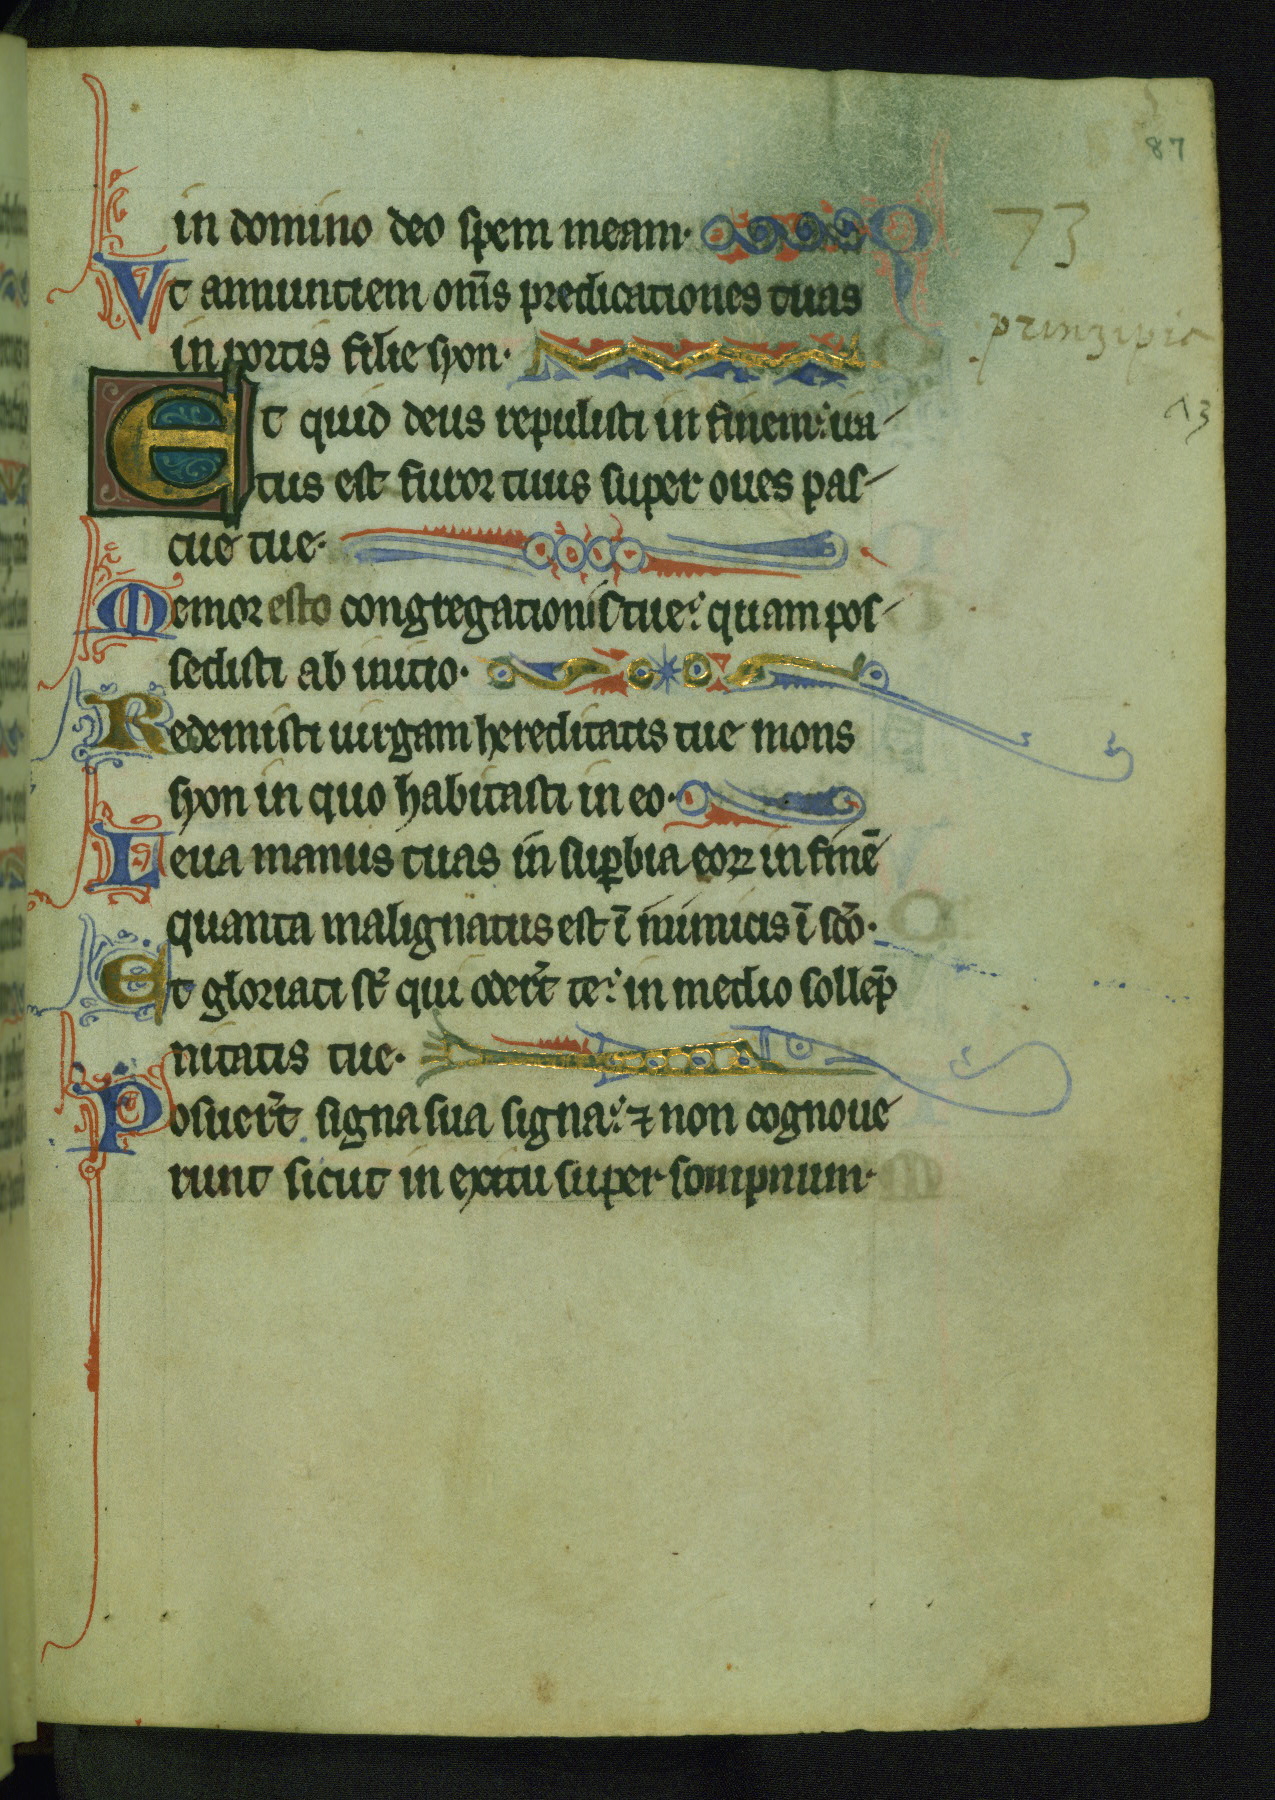 87
in domino deo spem meam·
73
Vt annuntiem om̅s predicationes tuas
in portis filie syon·
prinzipia
Et quid deus repulisti in finem: ira
13
tus est furor tuus super oues pas
cue tue·
Memor esto congregationis tue: quam pos
sedisti ab initio·
Redemisti uirgam hereditatis tue mons
syon in quo habitasti in eo·
Leua manus tuas in suꝑbia eoꝝ in finē
quanta malignatus est ī inimicis ī sc̄o·
Et gloriati st̄ qui oder̄t te: in medio sollēp
nitatis tue·
Posuer̄t signa sua signa: ⁊ non cognoue
runt sicut in exitu super sompnum·